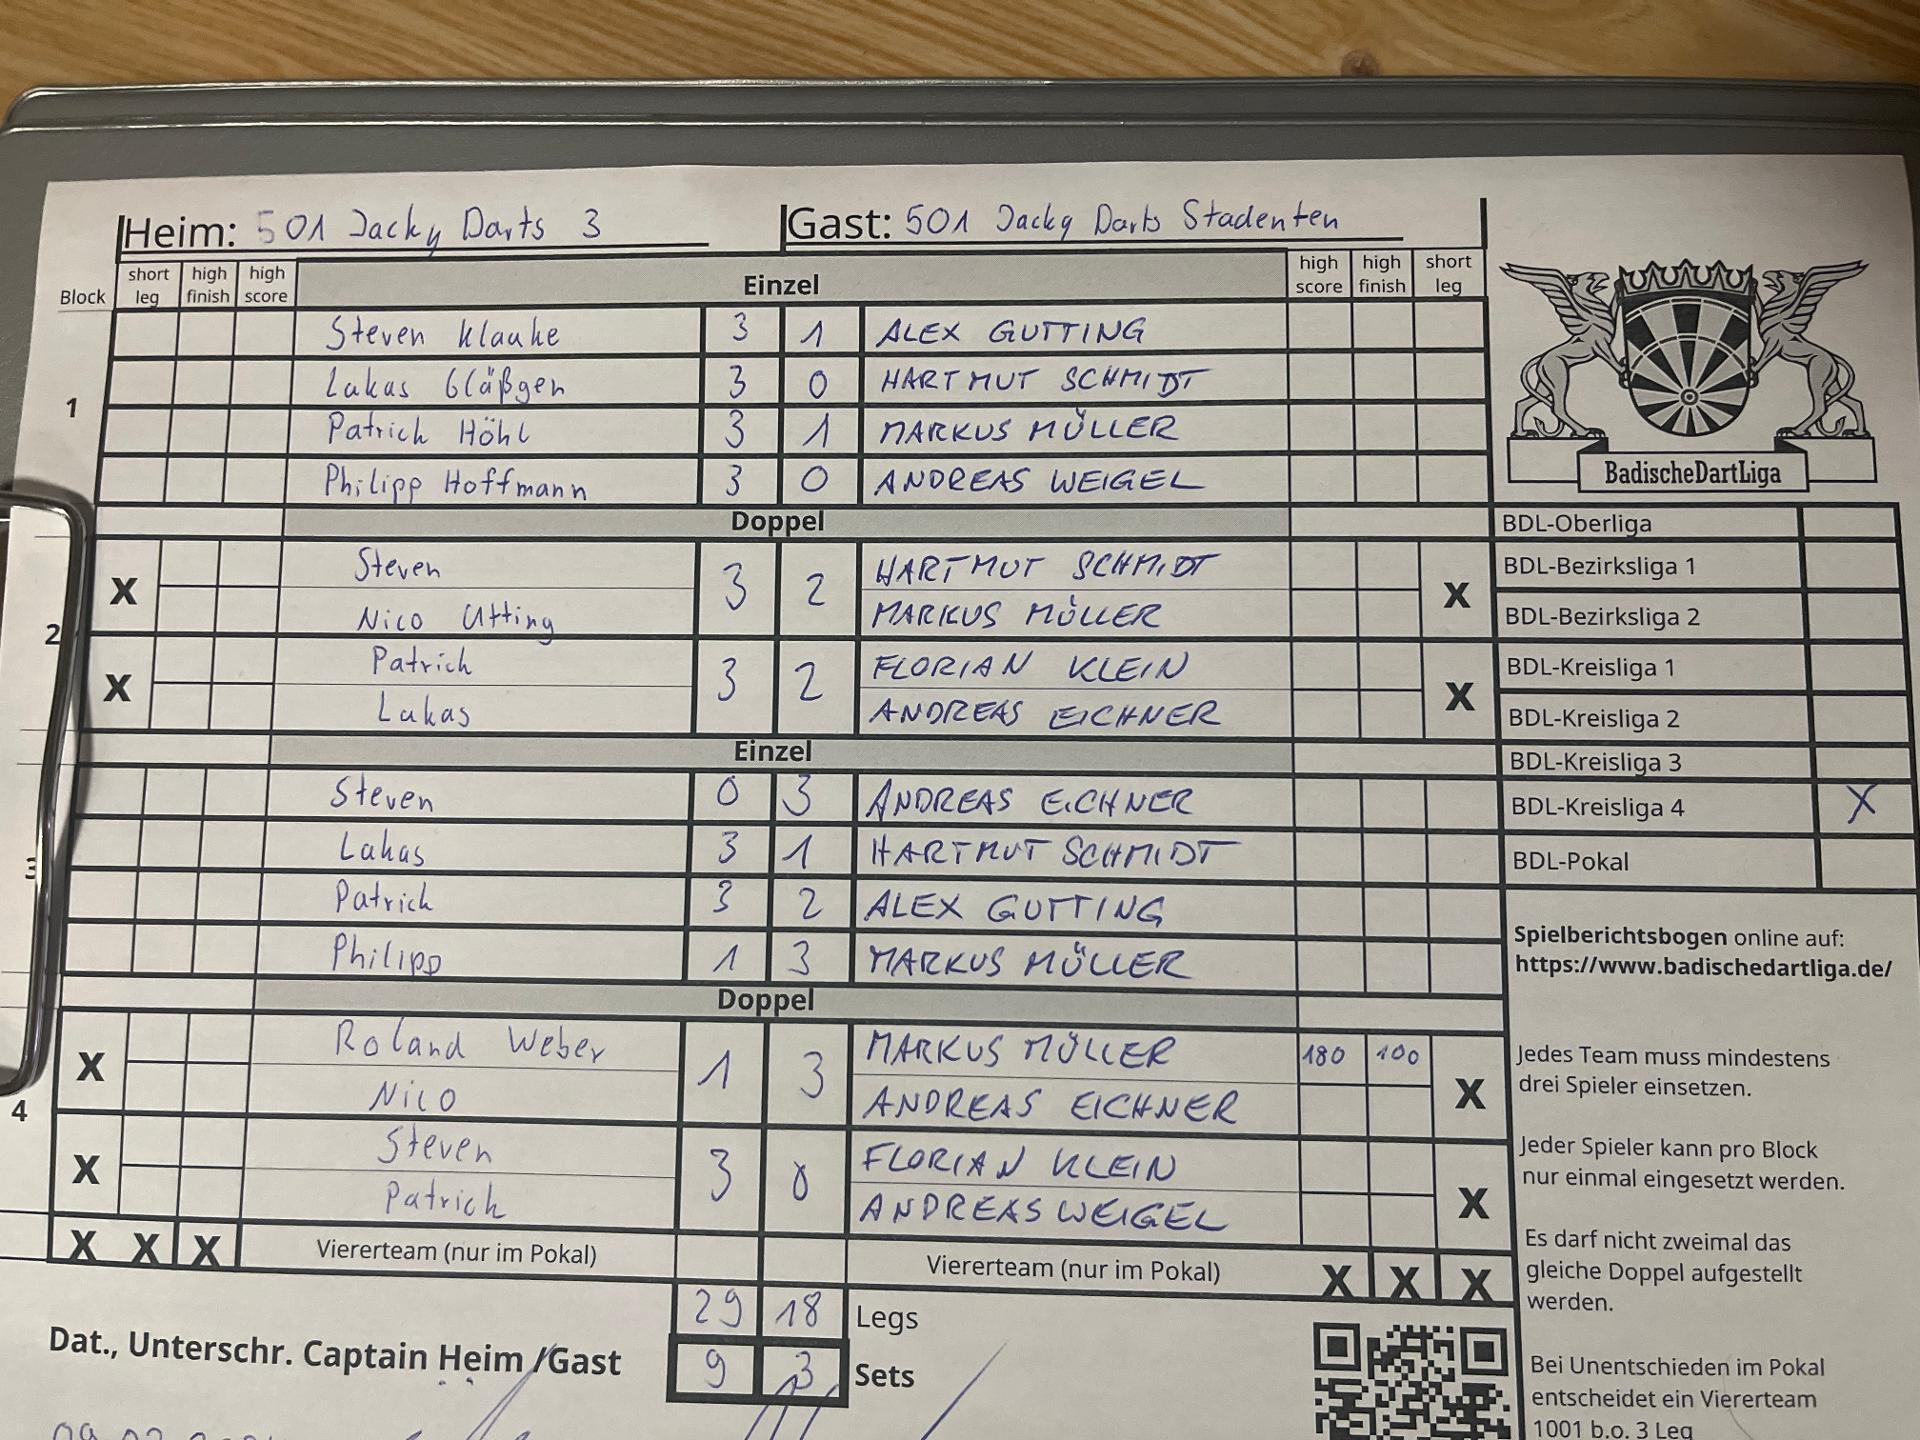 Heim: 501 Jacky Darts 3 Gast: 501 Jacky Darts Stadenten
Block short leg high finish high score Einzel high score high finish short leg
Steven Klauke 3 1 ALEX GUTTING
Lukas Gläßgen 3 0 HARTMUT SCHMIDT
1 Patrick Höhl 3 1 MARKUS MÜLLER
Philipp Hoffmann 3 0 ANDREAS WEIGEL
BadischeDartLiga
Doppel
X Steven 3 2 HARTMUT SCHMIDT X
Nico Utting MARKUS MÜLLER
2
X Patrick 3 2 FLORIAN KLEIN X
Lukas ANDREAS EICHNER
Einzel
Steven 0 3 ANDREAS EICHNER
Lukas 3 1 HARTMUT SCHMIDT
3 Patrick 3 2 ALEX GUTTING
Philipp 1 3 MARKUS MÜLLER
Doppel
X Roland Weber 1 3 MARKUS MÜLLER 180 100 X
Nico ANDREAS EICHNER
4
X Steven 3 0 FLORIAN KLEIN X
Patrick ANDREAS WEIGEL
X X X Viererteam (nur im Pokal) Viererteam (nur im Pokal) X X X
29 18 Legs
Dat., Unterschr. Captain Heim /Gast 9 3 Sets
BDL-Oberliga
BDL-Bezirksliga 1
BDL-Bezirksliga 2
BDL-Kreisliga 1
BDL-Kreisliga 2
BDL-Kreisliga 3
BDL-Kreisliga 4 X
BDL-Pokal
Spielberichtsbogen online auf:
https://www.badischedartliga.de/
Jedes Team muss mindestens
drei Spieler einsetzen.
Jeder Spieler kann pro Block
nur einmal eingesetzt werden.
Es darf nicht zweimal das
gleiche Doppel aufgestellt
werden.
Bei Unentschieden im Pokal
entscheidet ein Viererteam
1001 b.o. 3 Leg